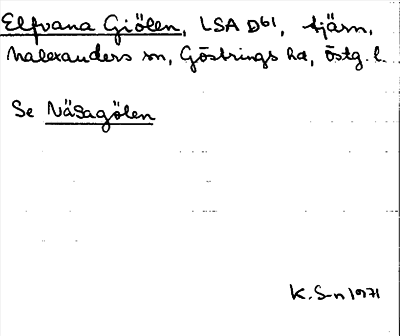 Elfvana Giölen, LSA D61, tjärn,
Malexanders sn, Göstrings hd, Östg. l.
Se Näsagölen
K. S-n 1971